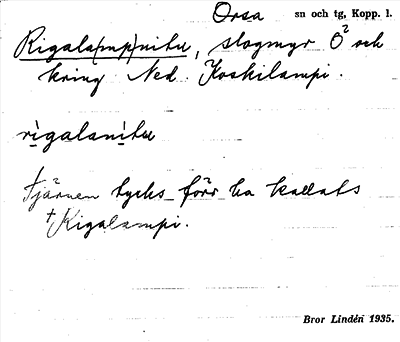 Orsa sn och tg, Kopp. l.
Rigala(mp)nitu, slogmyr O² och
kring Ned. Koskilampi.
rigalanitu
Tjärnen tycks förr ha kallats
†Rigalampi.
Bror Lindén 1935.